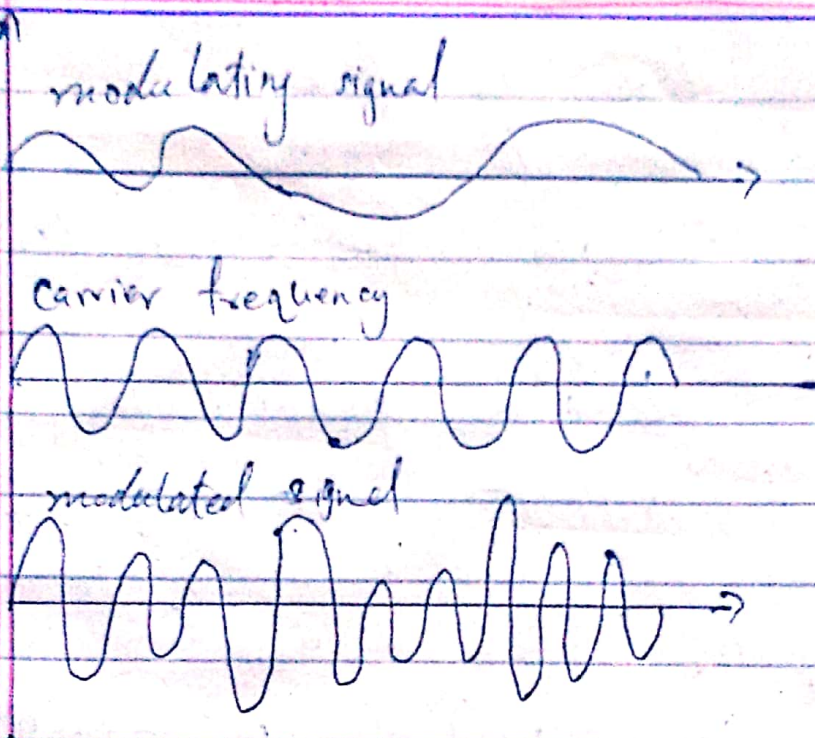 modulating signal
carrier frequency
modulated signal